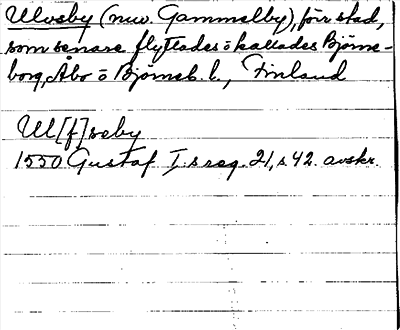 Ulvsby (nuv. Gammelby), förr stad,
som senare flyttades o kallades Björne-
borg, Åbo o Björneb. l., Finland
Ul[f]seby
1550 Gustaf I:s reg. 21, s 42. avskr.